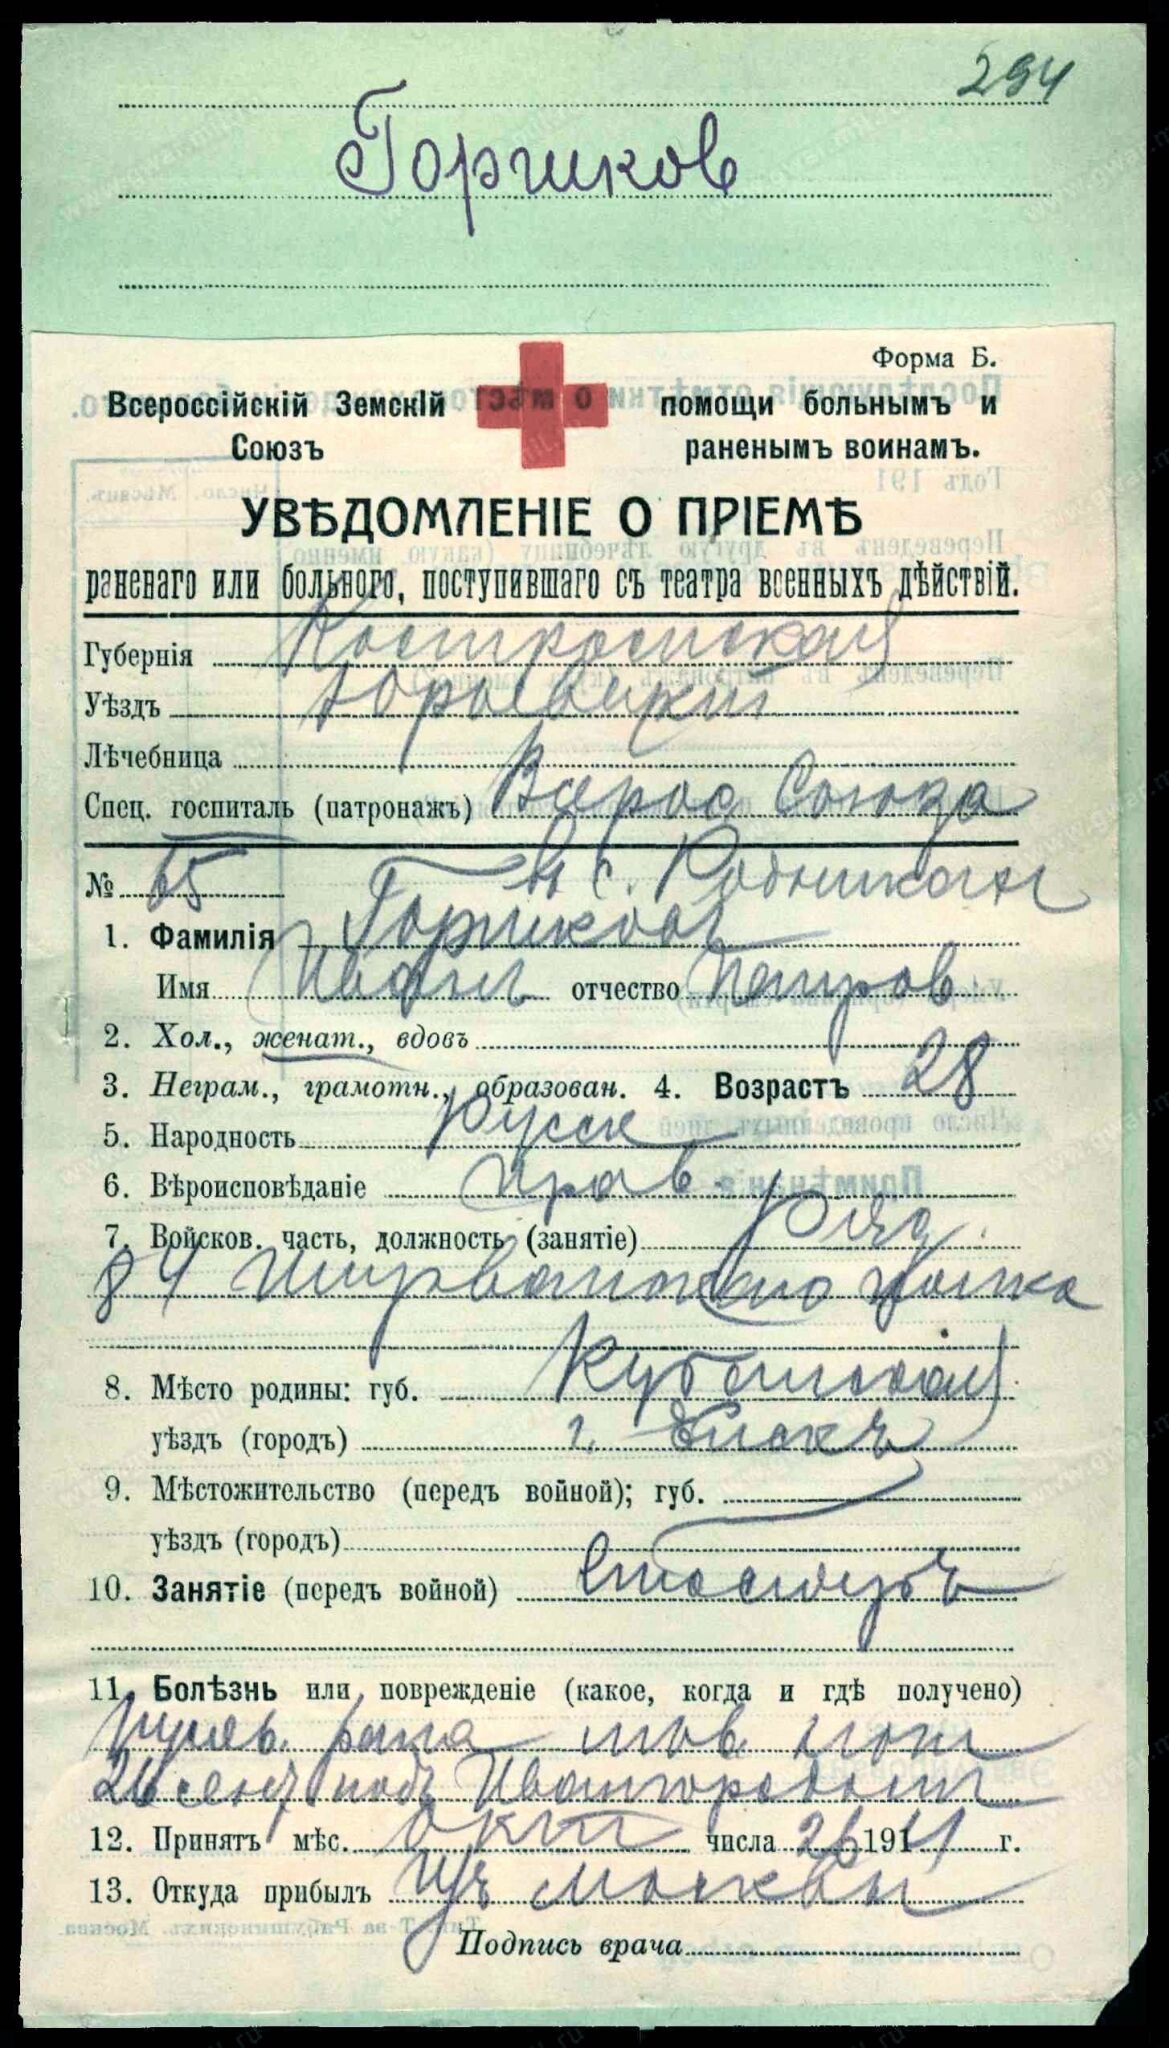 294
Горшков
Форма Б.
Всероссійскій Земскій помощи больнымъ и
Союзъ раненымъ воинамъ.
УВѢДОМЛЕНІЕ О ПРІЕМѢ
раненаго или больного, поступившаго съ театра военныхъ дѣйствій.
Губернія Костромская
Уѣздъ Юрьевецкій
Лѣчебница
Спец. госпиталь (патронажъ) Всерос Союза
№ 65 в с. Родникахъ
1. Фамилія Горшковъ
Имя отчество Петров
2. Хол., женат., вдовъ
3. Неграм., грамотн., образован. 4. Возрастъ 28
5. Народность Русск
6. Вѣроисповѣданіе Прав.
7. Войсков. часть, должность (занятіе) Ряд.
84 Ширванскаго полка
8. Мѣсто родины: губ. Кубанская
уѣздъ (городъ) г.
9. Мѣстожительство (передъ войной); губ.
уѣздъ (городъ)
10. Занятіе (передъ войной)
11. Болѣзнь или поврежденіе (какое, когда и гдѣ получено)
пулев. рана лѣв.
26 сент подъ Ивангородомъ
12. Принятъ мѣс. Окт числа 26 1914 г.
13. Откуда прибылъ Изъ Москвы
Подпись врача
Тип. Т-ва Рябушинскихъ. Москва.